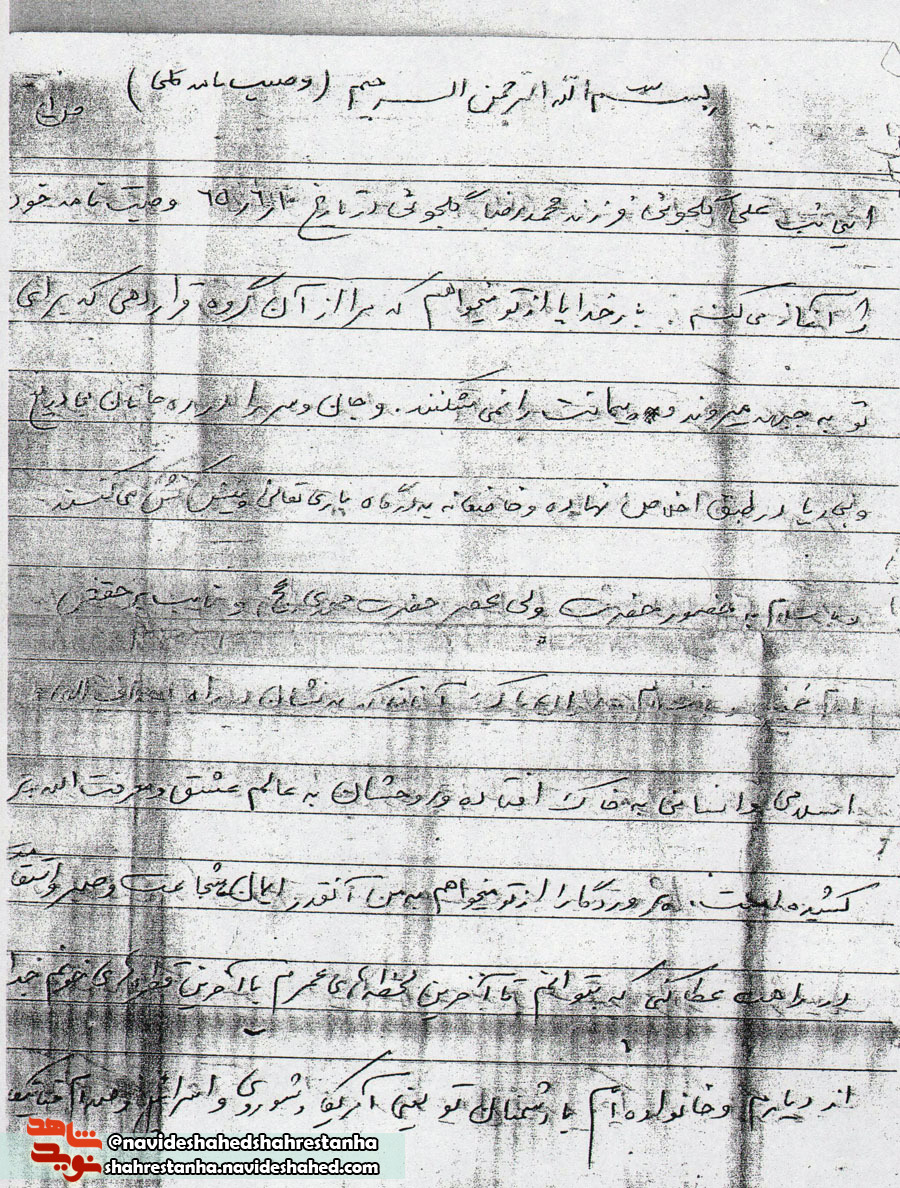 بسم الله الرحمن الرحیم (وصیت نامه کلی)
اینجانب علی گلجوئی فرزند محمدرضا گلجوئی در تاریخ ۶۵/۶/۱۰ وصیت نامه خود
را آغاز می کنم. بار خدایا از تو میخواهم که مرا از آن گروه قرار دهی که برای
تو به جبهه میروند و پیمانت را نمی شکنند. و جان و سر را در ره جانان
و بی ریا در طبق اخلاص نهاده و خاضعانه به درگاه باری تعالی پیش کش می کنند
با سلام به حضور حضرت ولی عصر حضرت مهدی عج و نایب بر حقش
امام خمینی پاک آنانکه در راه
اسلامی و انسانی به خاک افتاده و روحشان به عالم عشق و معرفت الله پر
کشیده است. پروردگارا از تو میخواهم به من آنقدر ایمان شجاعت و صبر و استقامت
در راهت عطا کنی که بتوانم تا آخرین لحظه های عمرم با آخرین قطره های خونم جدا
از دیارم و خانواده ام با دشمنان تو یعنی آمریکا و شوروی و اسرائیل و صدام
شاهد
نوید
@navideshahedshahrestanha
shahrestanha.navideshahed.com